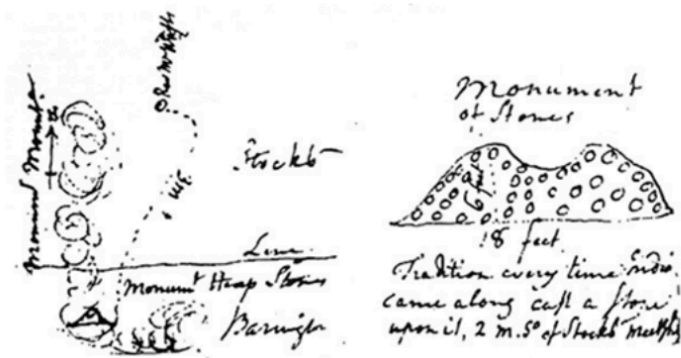 Monumt Mount.
N
Stockb
Line
Monumt Heap Stones
Barington
Monument
of Stones
6 feet
18 feet
Tradition every time Indio
came along cast a stone
upon it, 2 m. So of Stockb